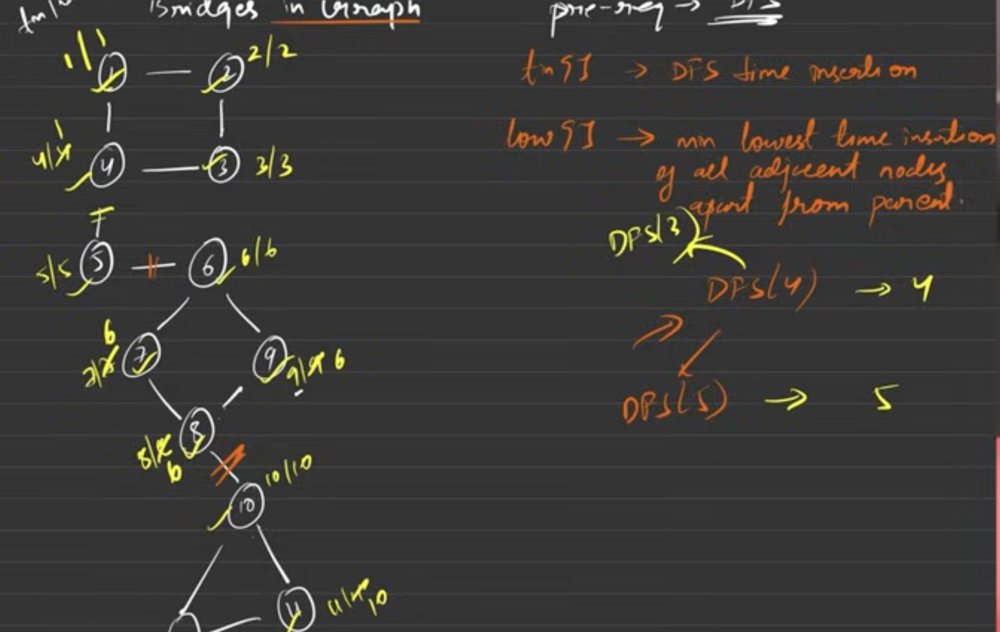 Bridges in Graph
pre-req → DFS
1/1
1
2
2/2
tn[] → DFS time insertion
4/4 1
4
3
3/3
low[] → min lowest time insertion
of all adjacent nodes
apart from parent.
5/5
5
6
6/6
DFS(3)
DFS(4) → 4
6
7
9
9/9 6
DFS(5) → 5
8
8/8
6
10/10
10
11
11/11 10